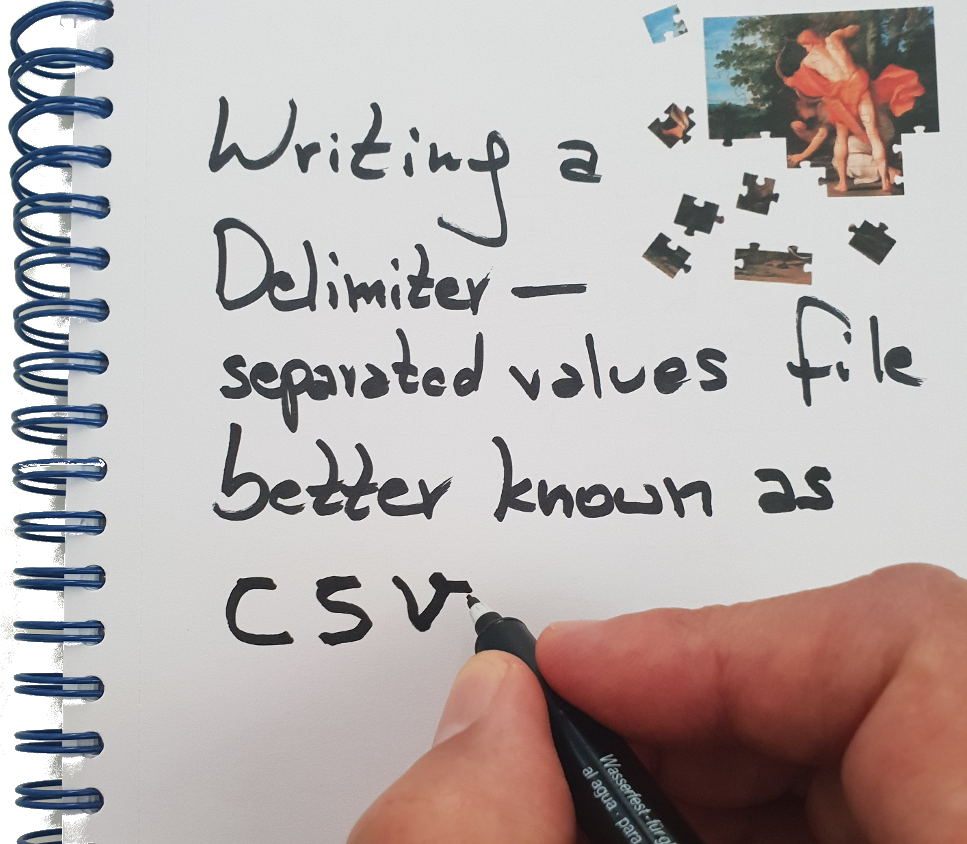 Writing a
Delimiter –
separated values file
better known as
CSV
Wasserfest · für
al agua · para